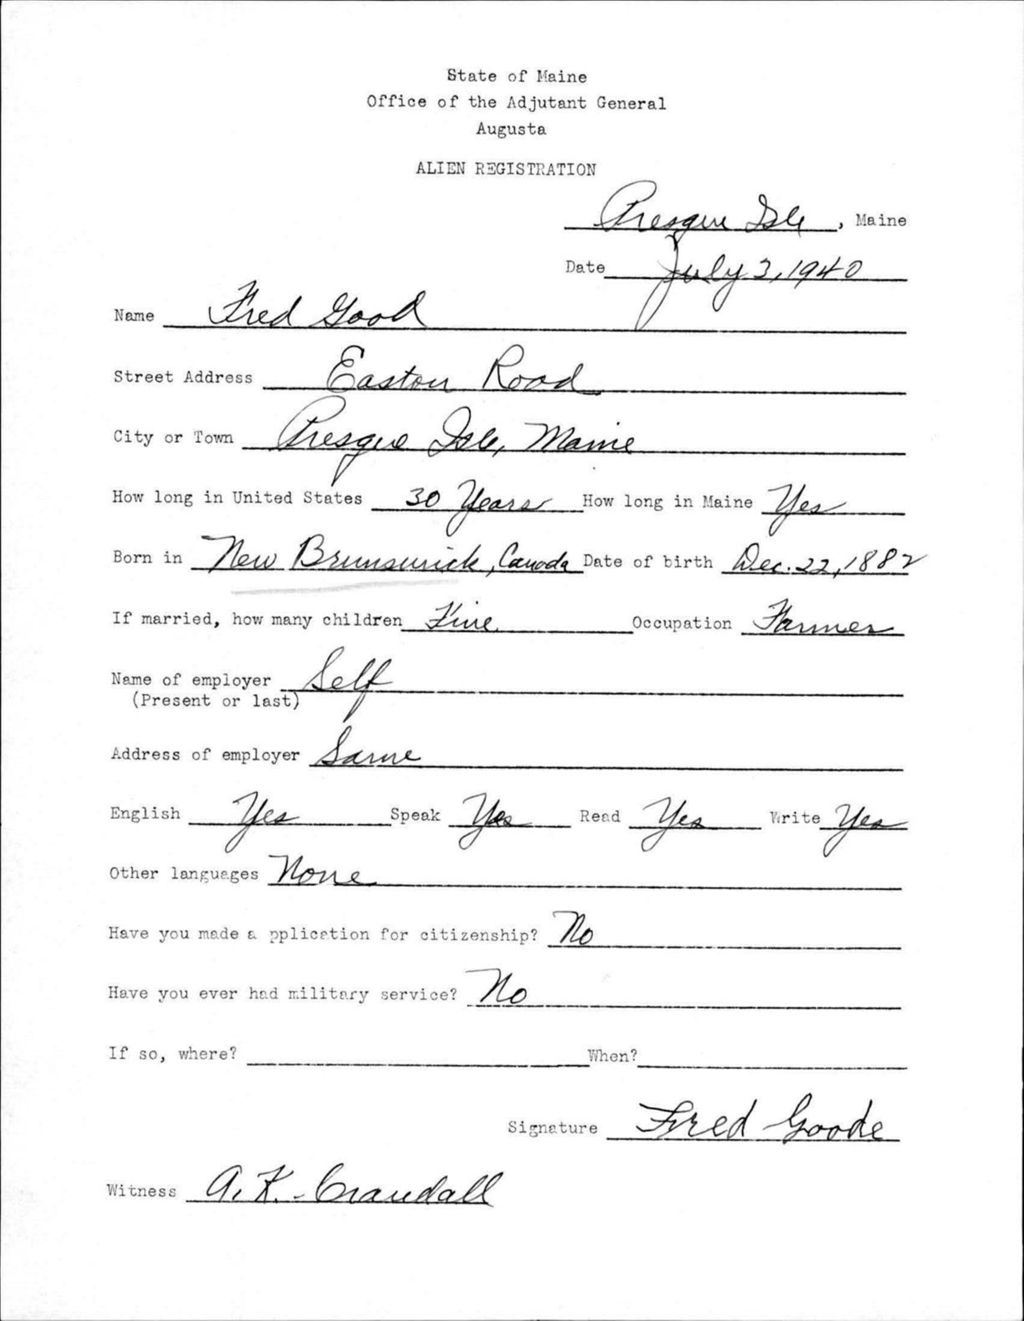 State of Maine
Office of the Adjutant General
Augusta
ALIEN REGISTRATION
Presque Isle, Maine
Date July 3, 1940
Name Fred Good
Street Address Easton Road
City or Town Presque Isle, Maine
How long in United States 30 Years How long in Maine Yes
Born in New Brunswick, Canada Date of birth Dec. 22, 1882
If married, how many children Five Occupation Farmer
Name of employer Self
(Present or last)
Address of employer Same
English Yes Speak Yes Read Yes Write Yes
Other languages None
Have you made a pplication for citizenship? No
Have you ever had military service? No
If so, where? When?
Signature Fred Goode
Witness A. K. Crandall